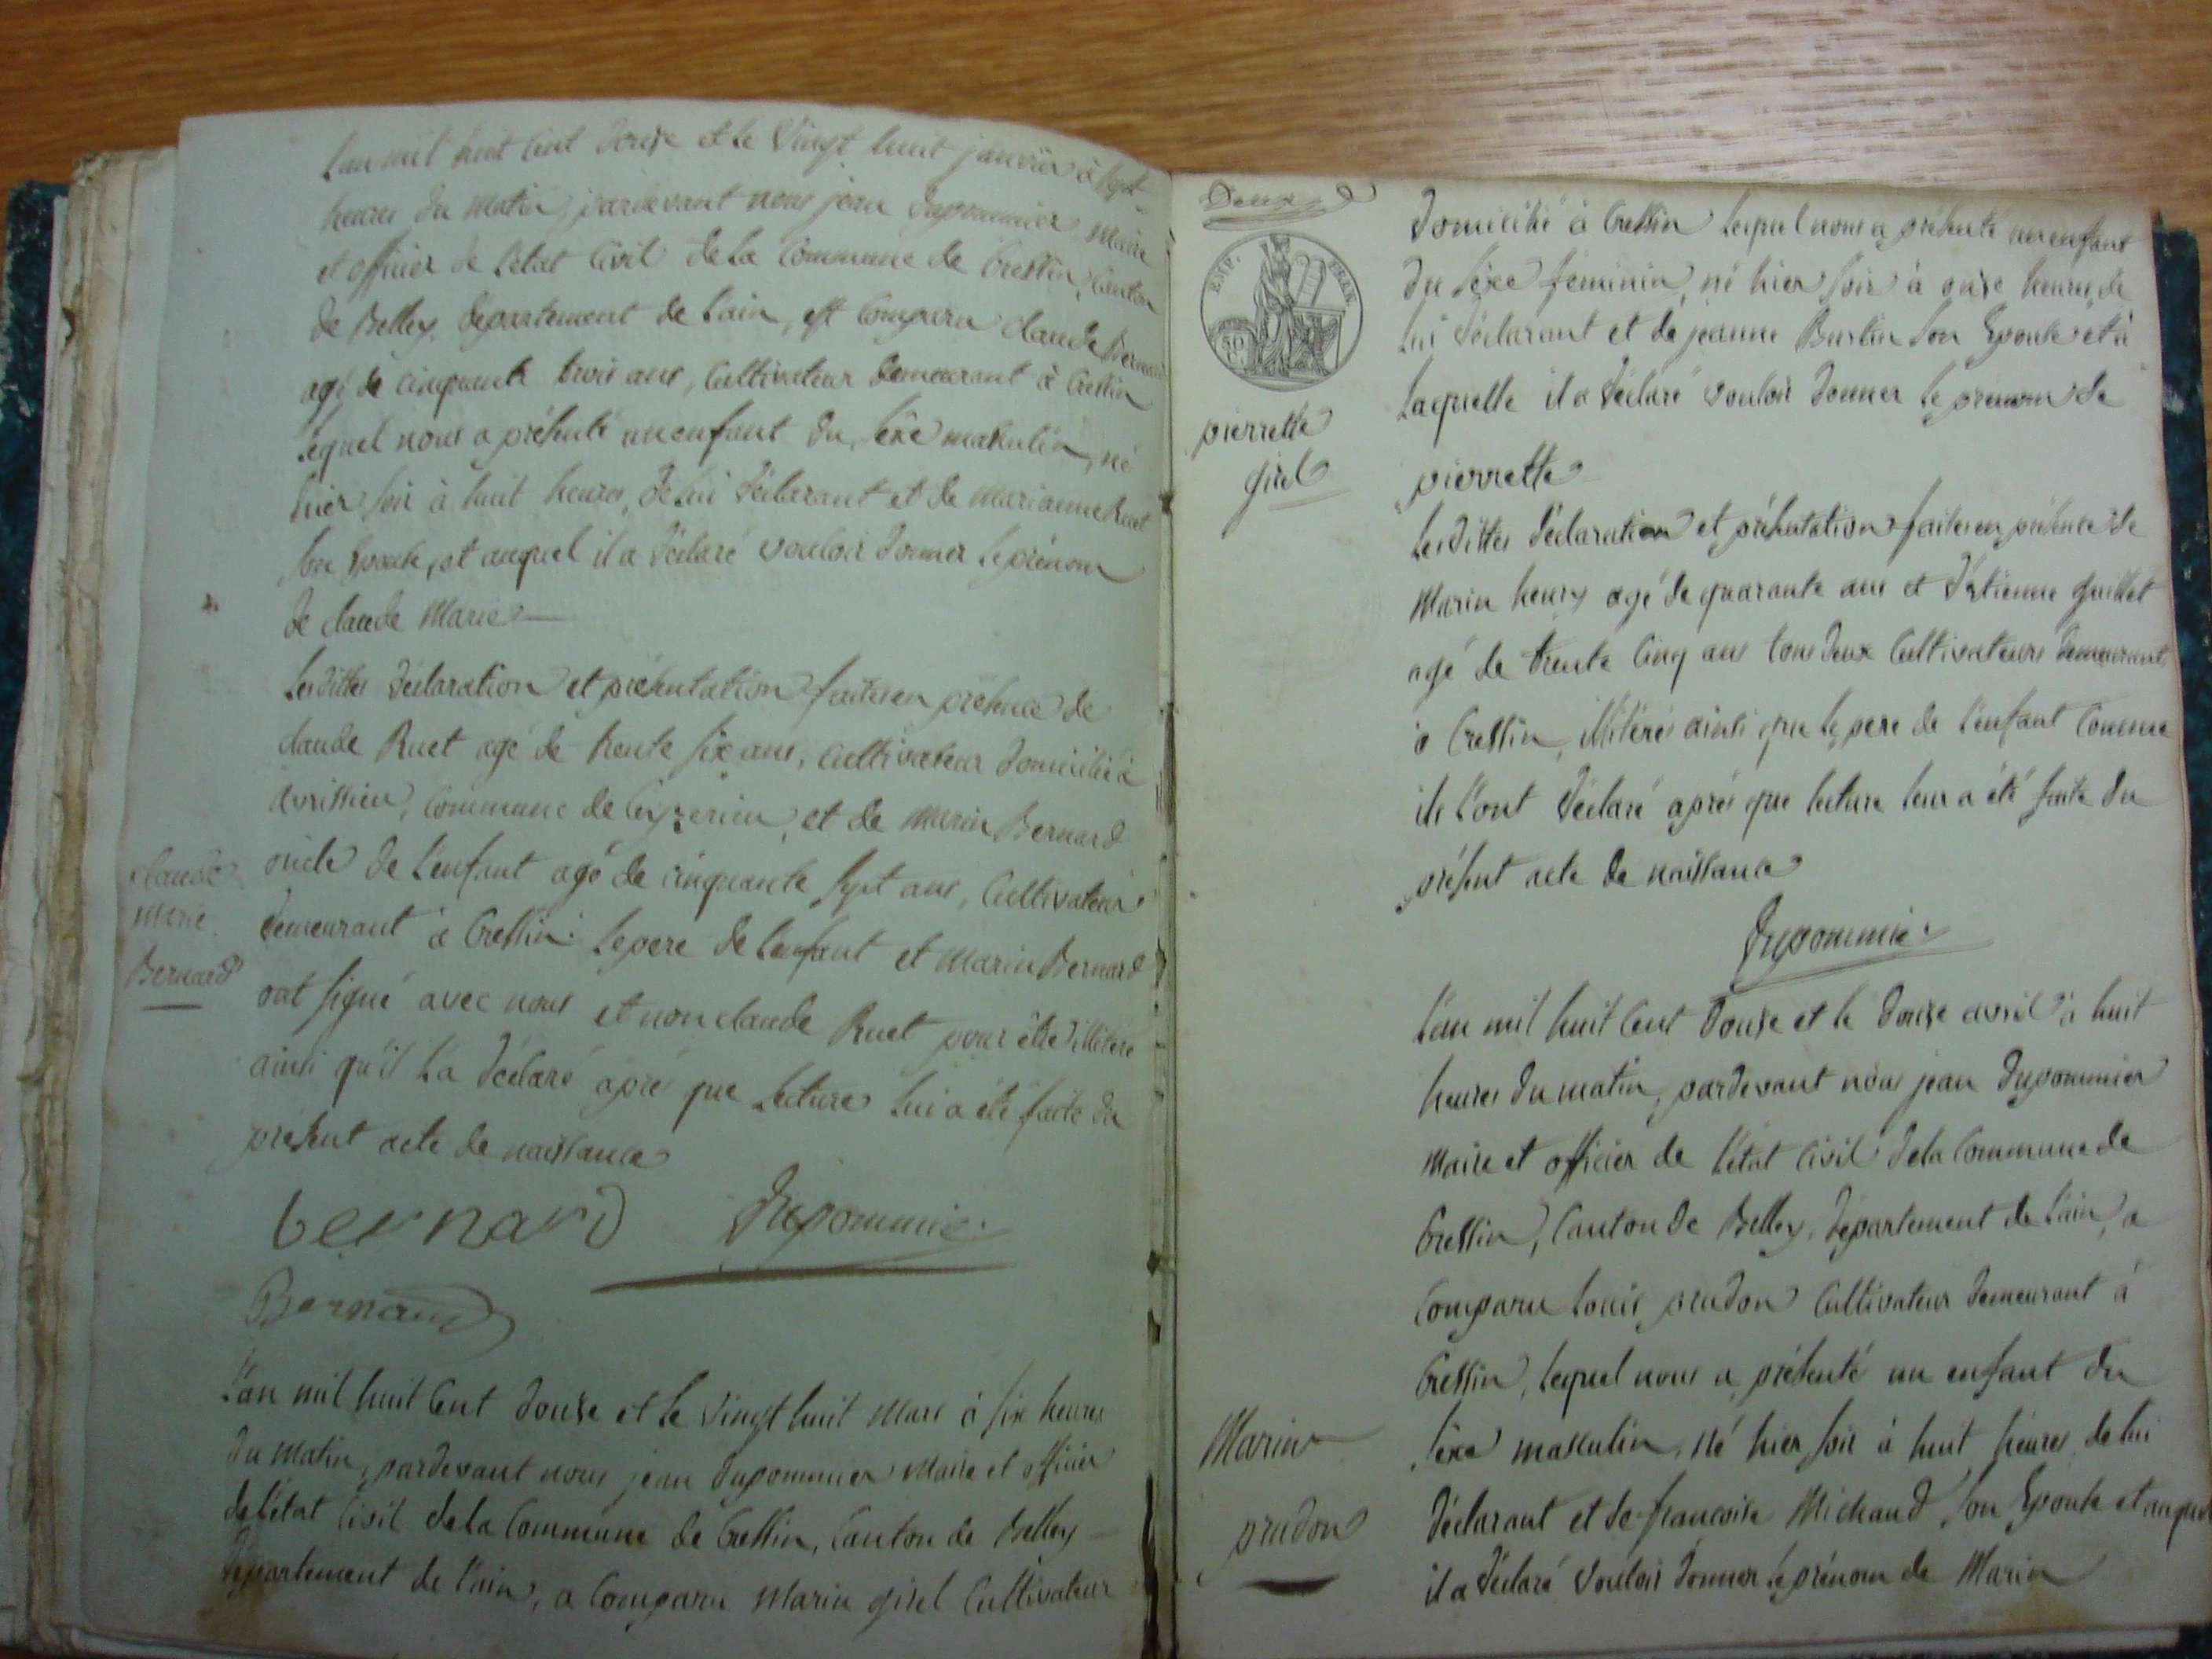 L'an mil huit cent douze et le vingt huit janvier à sept
heures du matin, pardevant nous jean dupommier maire
et officier de l'état civil de la commune de Cressin, Canton
de Belley, département de l'ain, est comparu claude Bernard
agé de cinquante trois ans, cultivateur demeurant à Cressin
lequel nous a présenté un enfant du sèxe masculin, né
hier soir à huit heures, de lui déclarant et de marianne Ruet
son Epouse, et auquel il a déclaré vouloir donner le prénom
de claude Marie
Lesdittes déclaration et présentation faites en présence de
claude Ruet agé de trente six ans, cultivateur domicilié à
avrissieu, commune de Ceyzerieu, et de Marin Bernard
oncle de l'enfant agé de cinquante sept ans, cultivateur
demeurant à Cressin. le pere de l'enfant et Marin Bernard
ont signé avec nous et non claude Ruet pour être illitéré
ainsi qu'il l'a déclaré après que lecture lui a été faite du
présent acte de naissance
claude
marie
Bernard
bernard Dupommier
Bernard
L'an mil huit cent douze et le vingt huit mars à six heures
du matin, pardevant nous jean dupommier maire et officier
de l'état civil de la commune de Cressin, Canton de Belley
département de l'ain, a comparu Marin girel cultivateur
Deux
EMP. FRAN.
50
C.
pierrette
girel
domicilié à Cressin lequel nous a présenté un enfant
du sèxe féminin, né hier soir à onze heures, de
lui déclarant et de jeanne Burtin son Epouse et à
laquelle il a déclaré vouloir donner le prenom de
pierrette
Lesdittes déclaration et présentation faites en présence de
Marin henry agé de quarante ans et d'étienne guillet
agé de trente cinq ans tous deux cultivateurs demeurant
à Cressin, illitérés ainsi que le pere de l'enfant comme
ils l'ont déclaré après que lecture leur a été faite du
présent acte de naissance
Dupommier
L'an mil huit cent douze et le douze avril à huit
heures du matin, pardevant nous jean dupommier
maire et officier de l'état civil de la commune de
Cressin, Canton de Belley, département de l'ain, a
comparu louis prudon cultivateur demeurant à
Cressin, lequel nous a présenté un enfant du
sèxe masculin, né hier soir à huit heures de lui
déclarant et de francoise Michaud son Epouse et auquel
il a déclaré vouloir donner le prénom de Marin
Marin
prudon